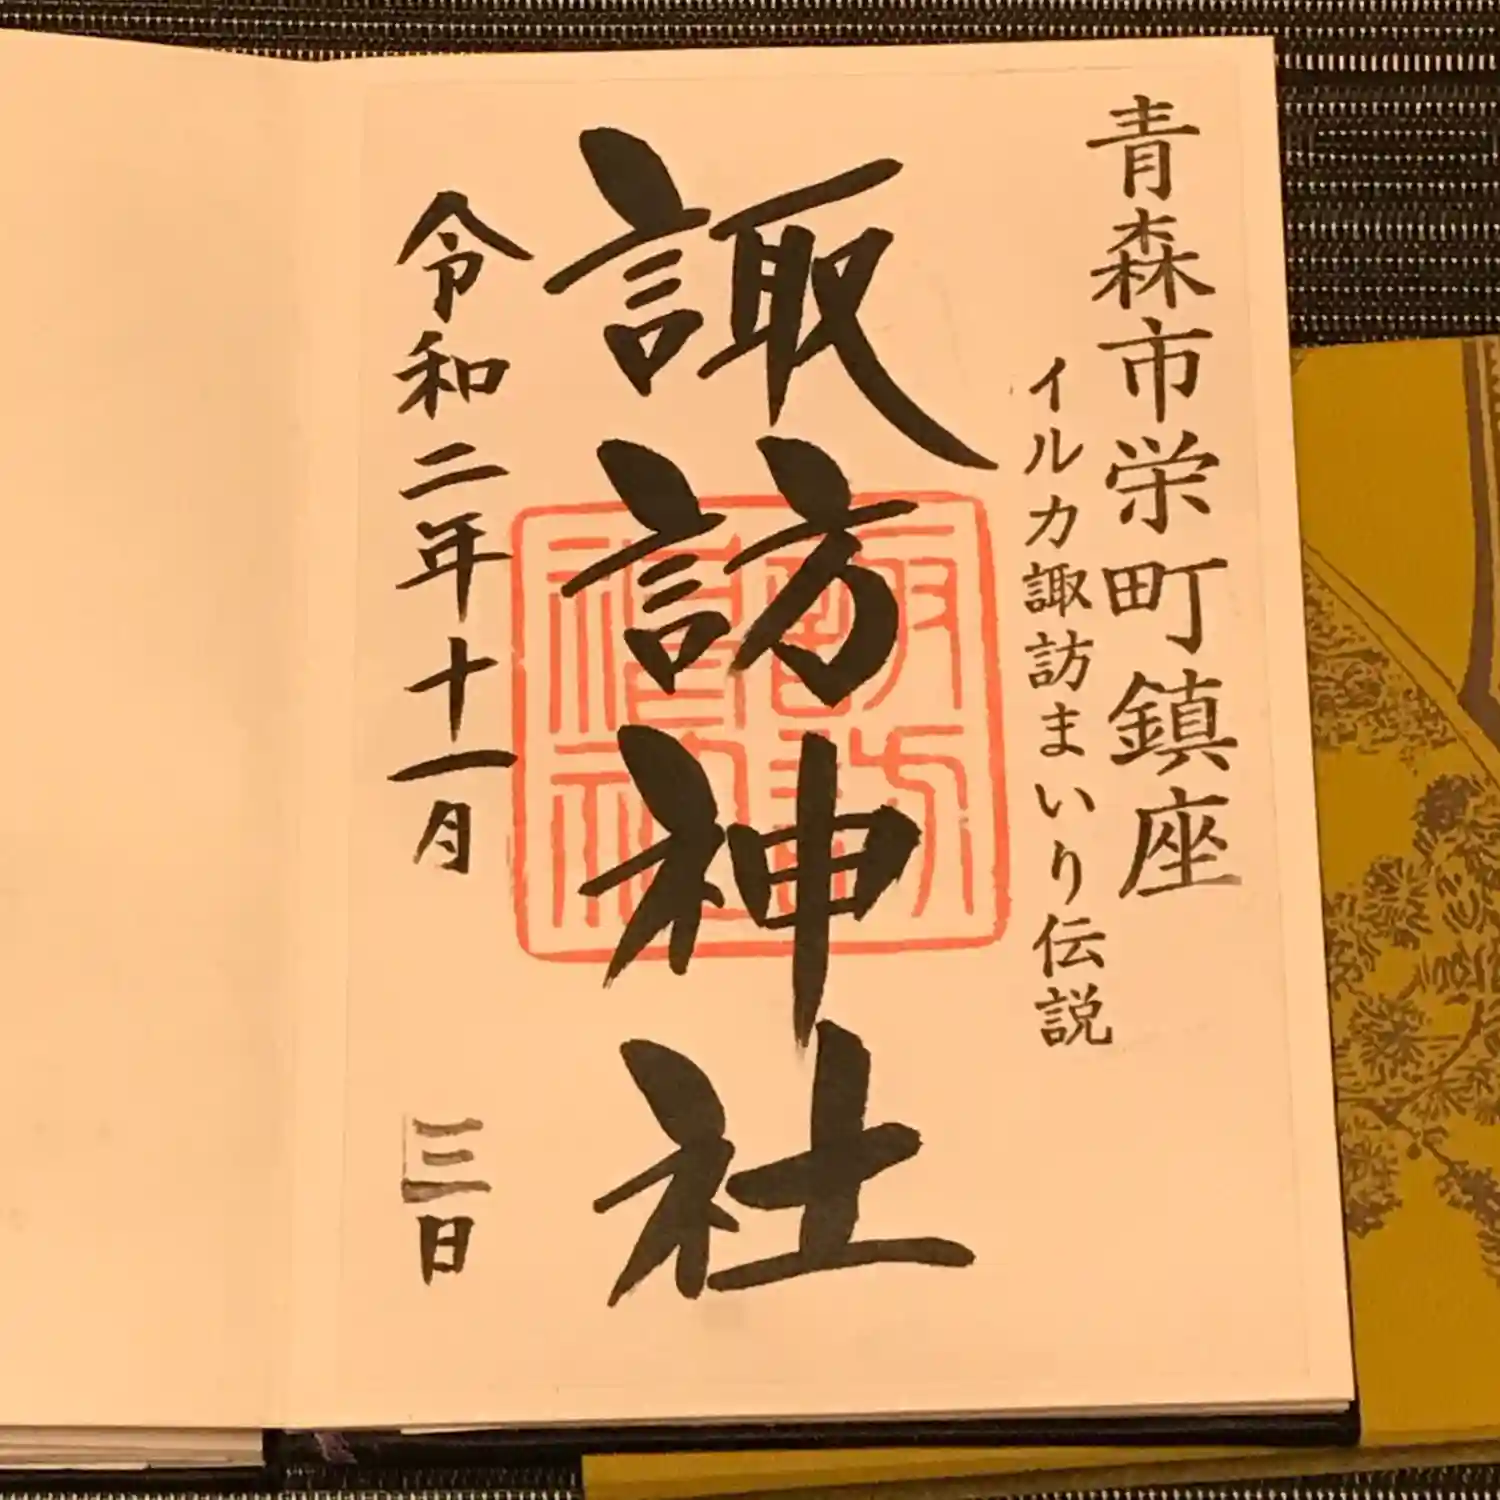 青森市栄町鎮座
イルカ諏訪まいり伝説
諏訪神社
令和二年十一月 三日